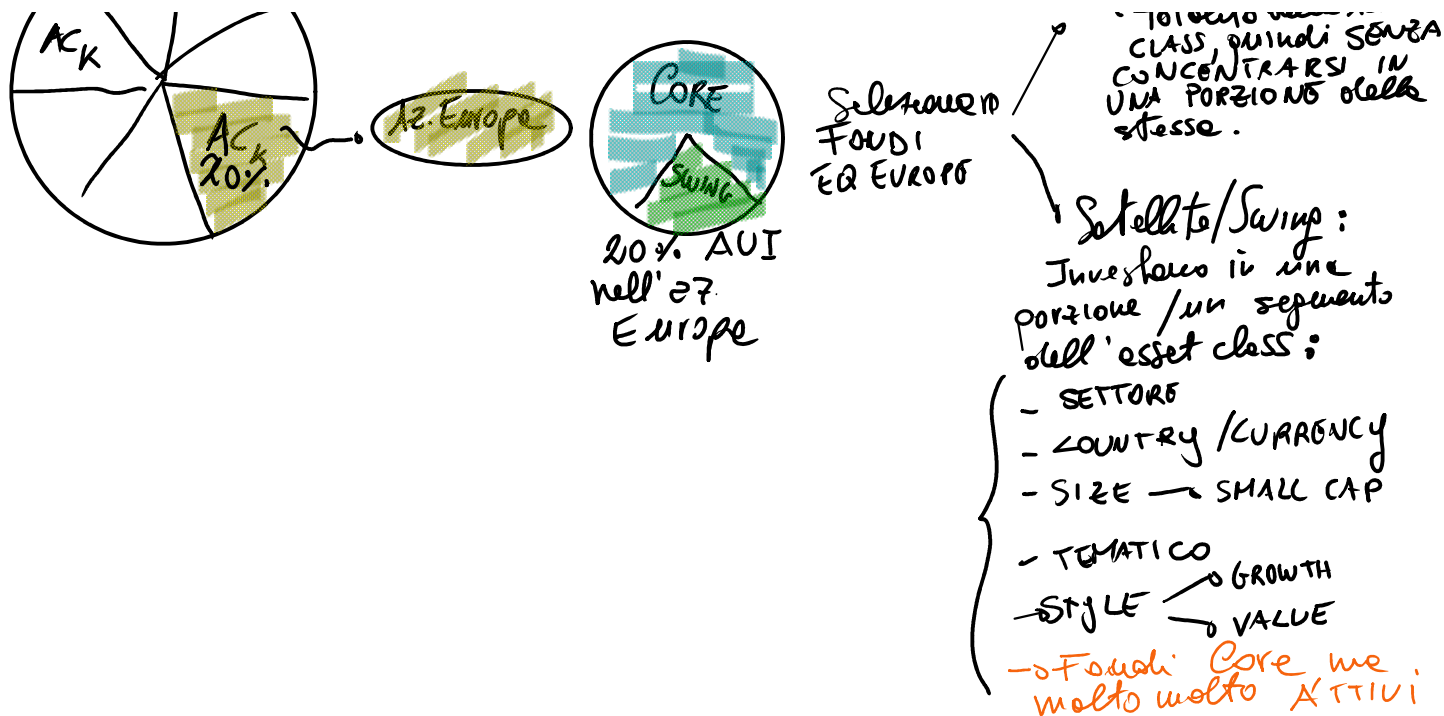 AC K
AC K
20%
Az. Europa
CORE
SWING
20% AUI
nell'az.
Europa
Selezionano
FONDI
EQ EUROPE
CLASS, quindi SENZA
CONCENTRARSI IN
UNA PORZIONE della
stessa.
Satellite/Swing:
Investono in una
porzione/un segmento
dell'asset class:
- SETTORE
- COUNTRY/CURRENCY
- SIZE → SMALL CAP
- TEMATICO
→ STYLE → GROWTH
→ VALUE
→ Fondi Core ma
molto molto ATTIVI